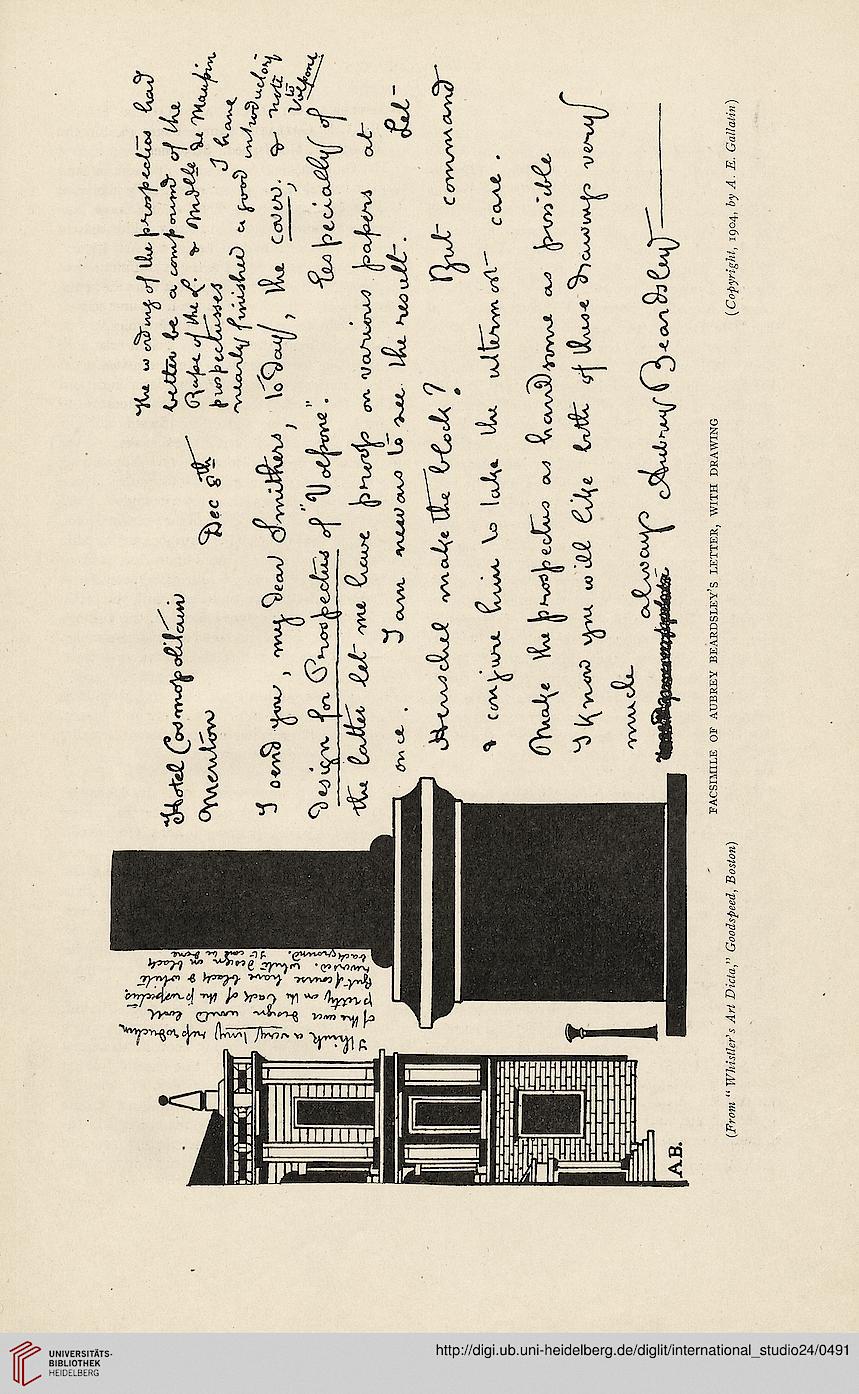 Hotel Cosmopolitain
Menton
Dec 8th
The wording of the prospectus had
better be a compound of the
Rape of the L. & Mdlle de Maupin
prospectusses I have
nearly finished a good introductory
note
to
Volpone
I send you, my dear Smithers, to day, the cover. &
design for Prospectus of "Volpone". Especially of
the latter let me have proofs on various papers at
once. I am nervous to see the result. Let-
Henschel make the block? But command
& conjure him to take the uttermost care.
Make the prospectus as handsome as possible
I know you will like both of these drawings very
much
always Aubrey Beardsley
I think a very tiny reproduction
of the cover design would look
pretty on the back of the prospectus
But of course have black & white
reversed. White design on black
background. It can be done
A.B.
FACSIMILE OF AUBREY BEARDSLEY'S LETTER, WITH DRAWING
(From "Whistler's Art Dicta," Goodspeed, Boston)
(Copyright, 1904, by A. E. Gallatin)
UNIVERSITÄTS-
BIBLIOTHEK
HEIDELBERG
http://digi.ub.uni-heidelberg.de/diglit/international_studio24/0491